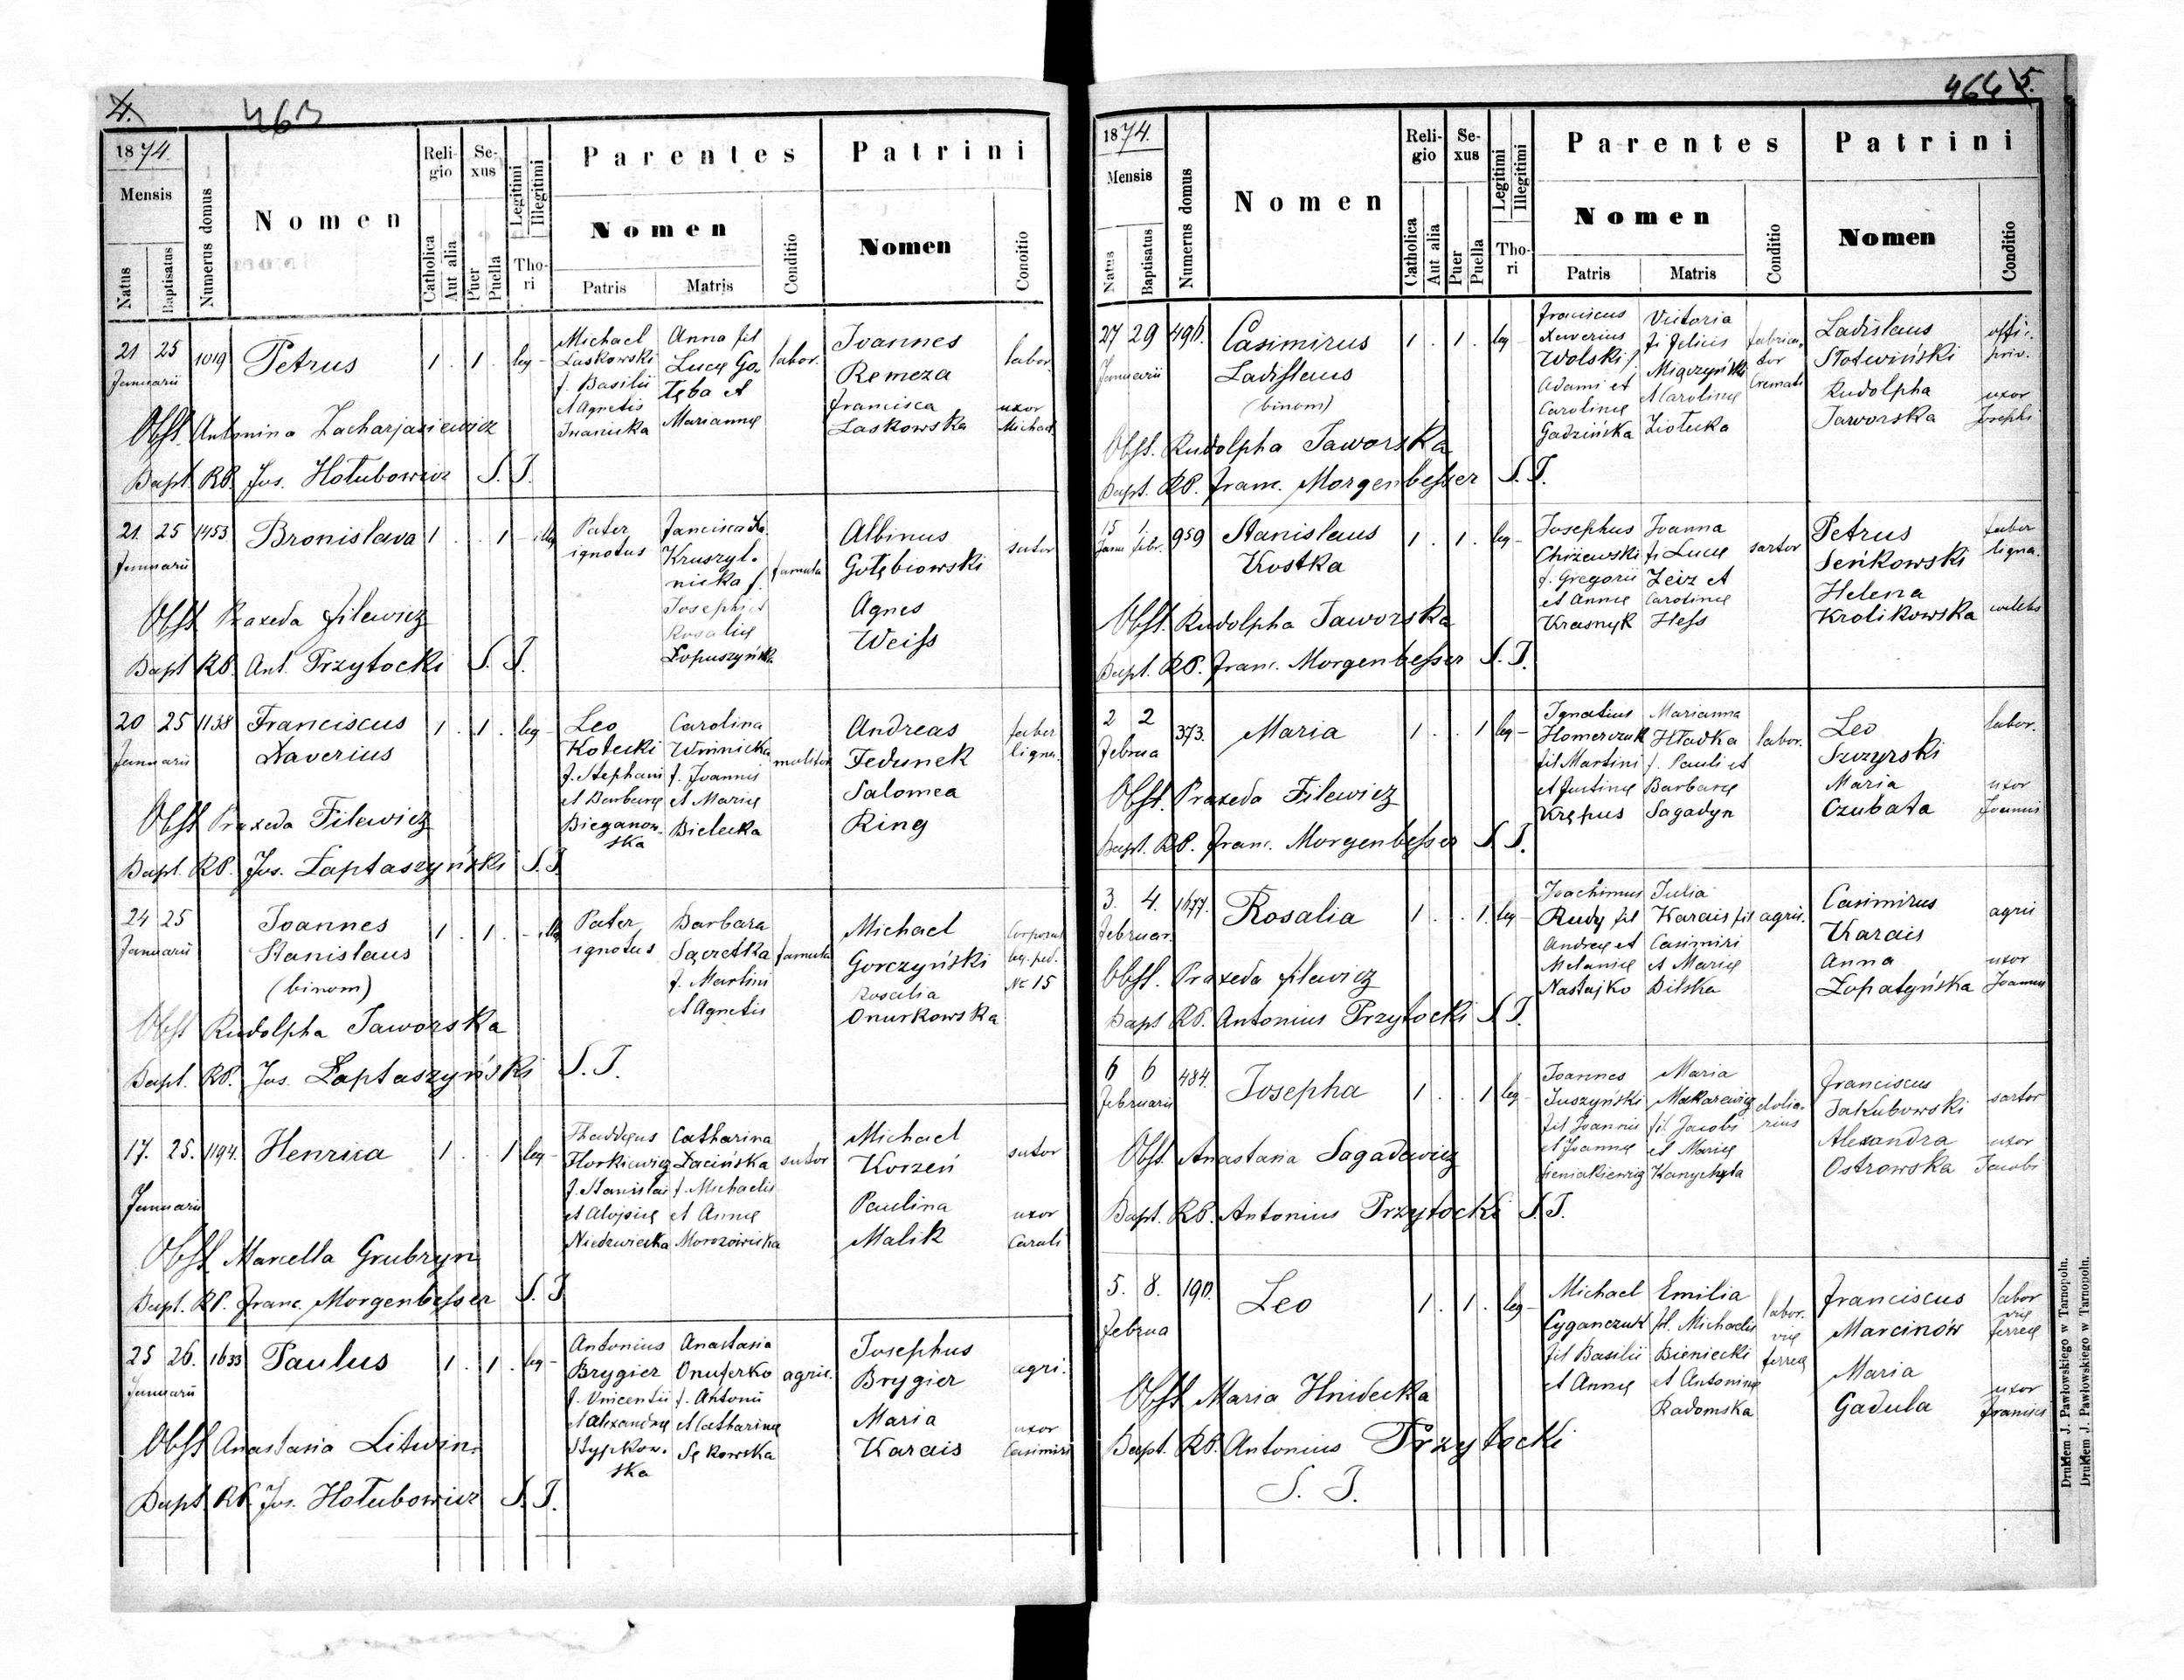 4.
463
1874.
Mensis
Natus
Baptisatus
Numerus domus
Nomen
Religio
Catholica
Aut alia
Sexus
Puer
Puella
Legitimi
Illegitimi
Thori
Parentes
Nomen
Patris
Matris
Conditio
Patrini
Nomen
Conditio
21 25 1019 Petrus 1 . 1 . leg -
Januarii
Michael
Laskowski
f. Basilii
et Agnetis
Iwanicka
Anna fil
Lucę Go-
łęba et
Mariannę
labor.
Joannes
Remeza
Francisca
Laskowska
labor
uxor
Michael
Obst. Antonina Zacharjasiewicz
Bapt. RP. Jos. Hołubowicz S. J.
21. 25 1453 Bronislava 1 . . 1 - illeg
Januarii
Pater
ignotus
Kruszyl-
nicka f.
Josephi et
Rosalię
Łopuszyńska
famula
Albinus
Gołębiowski
Agnes
Weiss
sutor
Obst. Praxeda Filewicz
Bapt RP. Ant. Przytocki S. J.
20 25 1138 Franciscus 1 . 1 . leg -
Januarii
Xaverius
Leo
Kotecki
f. Stephani
et Barbarę
Bieganow-
ska
Carolina
Winnicka
f. Joannis
et Marię
Bielecka
molitor
Andreas
Fedunek
Salomea
Ring
faber
ligna.
Obst Praxeda Filewicz
Bapt. RP. Jos. Łaptaszyński S. J
24 25 Joannes 1 . 1 . - illeg
Januarii
Stanislaus
(binom)
Pater
ignotus
Barbara
f. Martini
et Agnetis
famula
Michael
Gorczyński
Rosalia
Onurkowska
Corporal
leg. ped.
Nr 15
Obst Rudolpha Jaworska
Bapt. RP. Jos. Łaptaszyński S. J.
17. 25. 1194. Henrica 1 . . 1 leg -
Januarii
Thaddęus
Florkiewicz
f. Stanislai
et Aloysię
Niedzwiecka
Catharina
Łacińska
f. Michaelis
et Annę
sutor
Michael
Korzeń
Paulina
Malik
sutor
uxor
Caroli
Obst Marcella Grubryn
Bapt. RP. Franc. Morgenbesser S. J
25 26. 1633 Paulus 1 . 1 . leg -
Januarii
Antonius
Brygier
f. Vincentii
et Alexandrę
Stypkow-
ska
Anastasia
Onuferko
f. Antonii
et Catharinę
Sękowska
agric.
Josephus
Brygier
Maria
Karais
agri.
uxor
Casimiri
Obst Anastasia Litwin.
Bapt. RP. Jos. Hołubowicz S. J.
464 5.
1874.
Mensis
Natus
Baptisatus
Numerus domus
Nomen
Religio
Catholica
Aut alia
Sexus
Puer
Puella
Legitimi
Illegitimi
Thori
Parentes
Nomen
Patris
Matris
Conditio
Patrini
Nomen
Conditio
27 29 Casimirus 1 . 1 . leg -
Januarii
Ladislaus
(binom)
Franciscus
Xaverius
Wolski f.
Adami et
Carolinę
Gadzińska
Victoria
f. Felicis
et Carolinę
Ziołecka
fabrica-
tor
Ladislaus
Słotwiński
Rudolpha
Jaworska
offic.
priv.
uxor
Josephi
Obst. Rudolpha Jaworska
Bapt. RP. Franc. Morgenbesser S. J.
15 1 959 Stanislaus 1 . 1 . leg -
Janu febr.
Kostka
Josephus
Chiżewski
f. Gregorii
et Annę
Krasnyk
Joanna
f. Lucę
Zeiz et
Carolinę
Hess
sartor
Petrus
Seńkowski
Helena
Krolikowska
faber
ligna.
Obst. Rudolpha Jaworska
Bapt. RP. Franc. Morgenbesser S. J.
2 2 373. Maria 1 . . 1 leg -
Februa
Ignatius
Homerczuk
fil Martini
et Justinę
Krępus
Marianna
Hładka
f. Pauli et
Barbarę
Sagadyn
labor.
Leo
Szczyrski
Maria
Czubata
labor.
uxor
Joannis
Obst. Praxeda Filewicz
Bapt. RP. Franc. Morgenbesser S. J.
3. 4. 1677. Rosalia 1 . . 1. leg -
Februar.
Joachimus
Rudy fil
Andreę et
Melanię
Nastajko
Julia
Karais fil
Casimiri
et Marię
Bilska
agric.
Casimirus
Karais
Anna
Łopatyńska
agric
uxor
Joannis
Obst. Praxeda Filewicz
Bapt RP. Antonius Przytocki S J.
6 6 484. Josepha 1 . . 1 leg -
Februarii
Joannes
Juszyński
fil Joannis
et Joannę
Sieniakiewicz
Maria
Makarewicz
fil. Jacobi
et Marię
dolia-
rius
Franciscus
Jakubowski
Alexandra
Ostrowska
sartor
uxor
Jacobi
Obst. Anastasia Sagadewicz
Bapt. RP. Antonius Przytocki S. J.
5. 8. Leo 1 . 1 . leg -
Februa
Michael
Cyganczuk
fil Basilii
et Annę
Emilia
fil. Michaelis
Bieniecki
et Antoninę
Radomska
labor.
vię
ferreę
Franciscus
Marcinów
Maria
Gadula
labor
vię
ferreę
uxor
Francisci
Obst Maria Hnidecka
Bapt. RP. Antonius Przytocki
S. J.
Drukiem J. Pawłowskiego w Tarnopolu.
Drukiem J. Pawłowskiego w Tarnopolu.